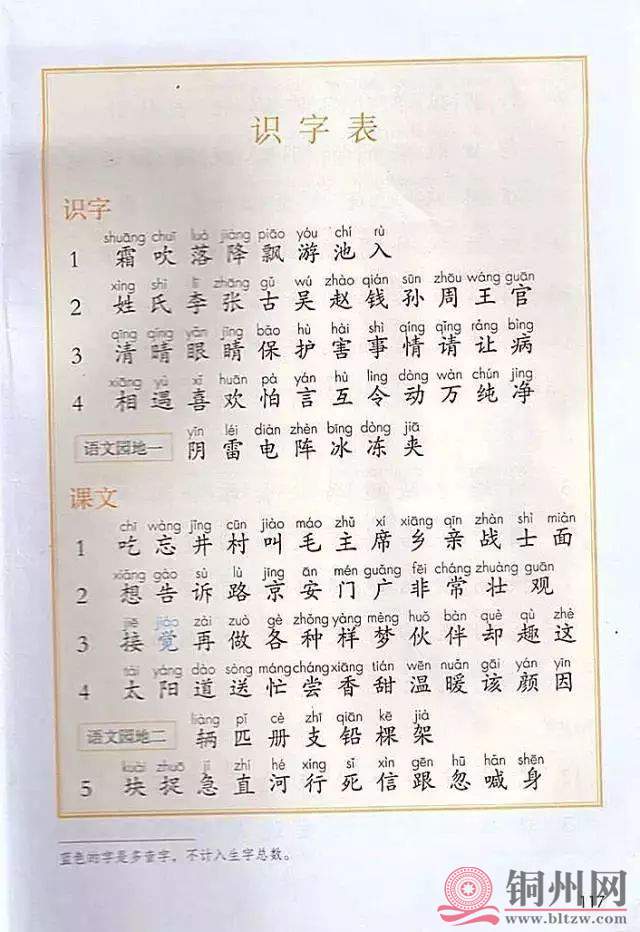 识字表
识字
shuāng chuī luò jiàng piāo yóu chí rù
1 霜吹落降飘游池入
xìng shì lǐ zhāng gǔ wú zhào qián sūn zhōu wáng guān
2 姓氏李张古吴赵钱孙周王官
qīng qíng yǎn jīng bǎo hù hài shì qíng qǐng ràng bìng
3 清晴眼睛保护害事情请让病
xiāng yù xǐ huān pà yán hù lìng dòng wàn chún jìng
4 相遇喜欢怕言互令动万纯净
yīn léi diàn zhèn bīng dòng jiā
语文园地一 阴雷电阵冰冻夹
课文
chī wàng jǐng cūn jiào máo zhǔ xí xiāng qīn zhàn shì miàn
1 吃忘井村叫毛主席乡亲战士面
xiǎng gào sù lù jīng ān mén guǎng fēi cháng zhuàng guān
2 想告诉路京安门广非常壮观
jiē jiào zài zuò gè zhǒng yàng mèng huǒ bàn què qù zhè
3 接觉再做各种样梦伙伴却趣这
tài yáng dào sòng máng cháng xiāng tián wēn nuǎn gāi yán yīn
4 太阳道送忙尝香甜温暖该颜因
liàng pǐ cè zhī qiān kē jià
语文园地二 辆匹册支铅棵架
kuài zhuō jí zhí hé xíng sǐ xìn gēn hū hǎn shēn
5 块捉急直河行死信跟忽喊身
蓝色的字是多音字，不计入生字总数。
117
铜州网
www.bltzw.com